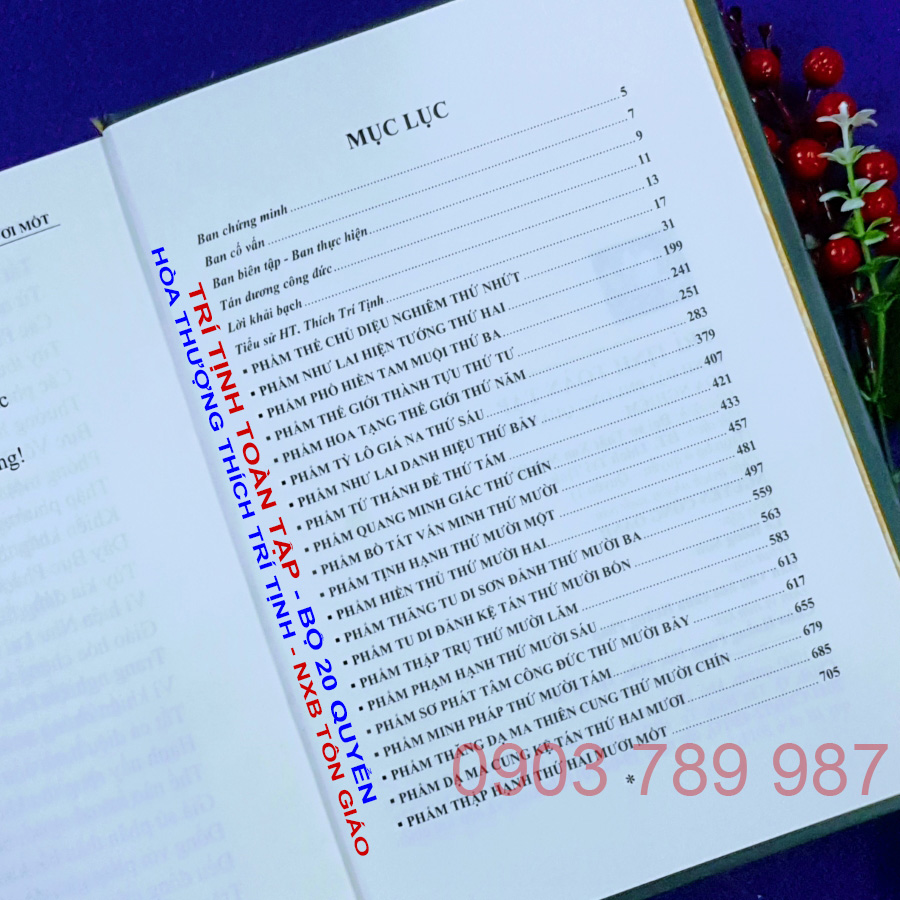 ƠI MỘT
c
ng!
MỤC LỤC
Ban chứng minh 5
Ban cố vấn 7
Ban biên tập - Ban thực hiện 9
Tán dương công đức 11
Lời khải bạch 13
Tiểu sử HT. Thích Trí Tịnh 17
▪ PHẨM THẾ CHỦ DIỆU NGHIÊM THỨ NHỨT 31
▪ PHẨM NHƯ LAI HIỆN TƯỚNG THỨ HAI 199
▪ PHẨM PHỔ HIỀN TAM MUỘI THỨ BA 241
▪ PHẨM THẾ GIỚI THÀNH TỰU THỨ TƯ 251
▪ PHẨM HOA TẠNG THẾ GIỚI THỨ NĂM 283
▪ PHẨM TỲ LÔ GIÁ NA THỨ SÁU 379
▪ PHẨM NHƯ LAI DANH HIỆU THỨ BẢY 407
▪ PHẨM TỨ THÁNH ĐẾ THỨ TÁM 421
▪ PHẨM QUANG MINH GIÁC THỨ CHÍN 433
▪ PHẨM BỒ TÁT VẤN MINH THỨ MƯỜI 457
▪ PHẨM TỊNH HẠNH THỨ MƯỜI MỘT 481
▪ PHẨM HIỀN THỦ THỨ MƯỜI HAI 497
▪ PHẨM THĂNG TU DI SƠN ĐẢNH THỨ MƯỜI BA 559
▪ PHẨM TU DI ĐẢNH KỆ TÁN THỨ MƯỜI BỐN 563
▪ PHẨM THẬP TRỤ THỨ MƯỜI LĂM 583
▪ PHẨM PHẠM HẠNH THỨ MƯỜI SÁU 613
▪ PHẨM SƠ PHÁT TÂM CÔNG ĐỨC THỨ MƯỜI BẢY 617
▪ PHẨM MINH PHÁP THỨ MƯỜI TÁM 655
▪ PHẨM THĂNG DẠ MA THIÊN CUNG THỨ MƯỜI CHÍN 679
▪ PHẨM DẠ MA CUNG KỆ TÁN THỨ HAI MƯƠI 685
▪ PHẨM THẬP HẠNH THỨ HAI MƯƠI MỐT 705
*
TRÍ TỊNH TOÀN TẬP - BỘ 20 QUYỂN
HÒA THƯỢNG THÍCH TRÍ TỊNH - NXB TÔN GIÁO
0903 789 987